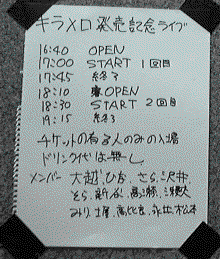 キラメロ発売記念ライブ
16:40 OPEN
17:00 START 1回目
17:45 終了
18:10 OPEN
18:30 START 2回目
19:15 終了
チケットの有る人のみの入場
ドリンク代は無し
メンバー 大越、ひな、さら、沢井、
そら、新谷、高瀬、
みり、土屋、高比良、永井、松本